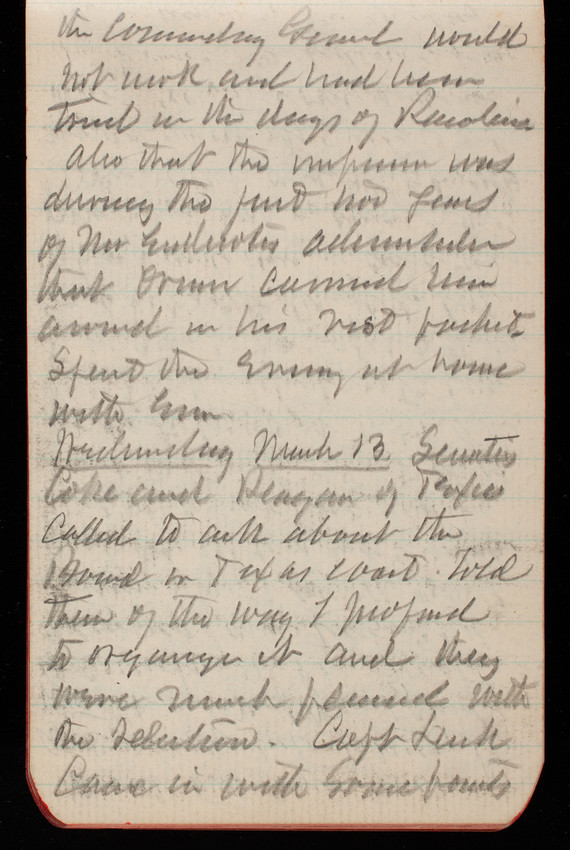 the Commanding General would
not work and had been
tried in the days of Rawlins
Also that the impression was
during the first two years
of Mr
that carried him
around in his vest pocket
Spent the evening at home
with
Wednesday March 13 Senators
Coke and Reagan of Texas
called to ask about the
Board on Texas coast. Told
them of the way I proposed
to organize it and they
were much pleased with
the selection. Capt
Came in with Some points